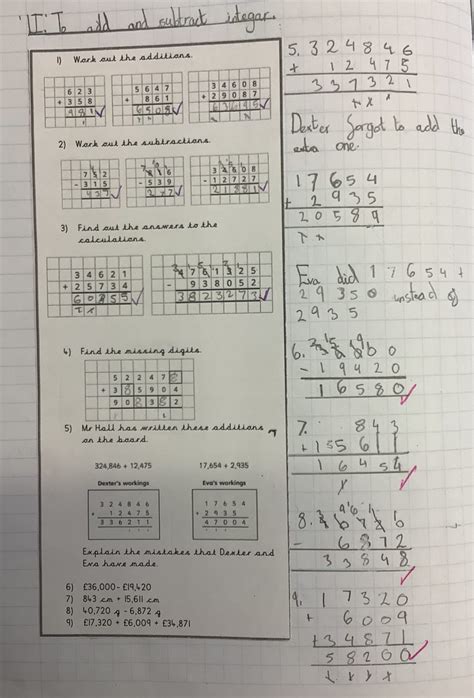 LI: To add and subtract integar.
1) Work out the additions.
6 2 3
+ 3 5 8
9 8 1
5 6 4 7
+ 8 6 1
6 5 0 8
3 4 6 0 8
+ 2 9 0 8 7
6 3 6 9 5
2) Work out the subtractions.
7 5 2
- 3 1 5
4 3 7
- 5 3 9
3 4 6 0 8
- 1 2 7 2 7
2 1 8 8 1
3) Find out the answers to the
calculations.
3 4 6 2 1
+ 2 5 7 3 4
6 0 3 5 5
4 7 6 1 3 2 5
- 9 3 8 0 5 2
3 8 2 3 2 7 3
4) Find the missing digits.
5 2 2 4 7 8
+ 3 8 5 9 0 4
9 0 8 3 8 2
5) Mr Hall has written these additions
on the board.
324,846 + 12,475
17,654 + 2,935
Dexter's workings
3 2 4 8 4 6
+ 1 2 4 7 5
3 3 6 2 1 1
Eva's workings
1 7 6 5 4
+ 2 9 3 5
4 7 0 0 4
Explain the mistakes that Dexter and
Eva have made.
6) £36,000 - £19,420
7) 843 cm + 15,611 cm
8) 40,720 g - 6,872 g
9) £17,320 + £6,009 + £34,871
5. 3 2 4 8 4 6
+ 1 2 4 7 5
3 3 7 3 2 1
Dexter forgot to add the
extra one.
1 7 6 5 4
+ 2 9 3 5
2 0 5 8 9
Eva did 1 7 6 5 4 +
2 9 3 5 0 instead of
2 9 3 5
6.
- 1 9 4 2 0
1 6 5 8 0
7. 8 4 3
+ 1 5 5 6 1 1
1 6 4 5 4
8.
- 6 8 7 2
3 3 8 4 8
9. 1 7 3 2 0
+ 6 0 0 9
+ 3 4 8 7 1
5 8 2 0 0